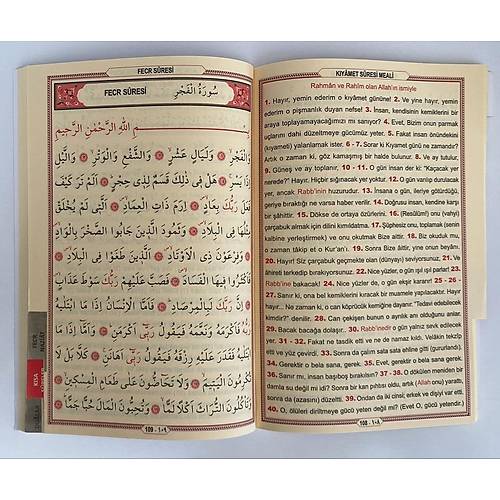 FECR SÛRESİ
FECR SÛRESİ سُورَةُ الْفَجْرِ
بِسْمِ اللّٰهِ الرَّحْمٰنِ الرَّحِيمِ
وَالْفَجْرِ وَلَيَالٍ عَشْرٍ وَالشَّفْعِ وَالْوَتْرِ وَالَّيْلِ
اِذَا يَسْرِ هَلْ فِى ذٰلِكَ قَسَمٌ لِذِى حِجْرٍ اَلَمْ تَرَ كَيْفَ
فَعَلَ رَبُّكَ بِعَادٍ اِرَمَ ذَاتِ الْعِمَادِ اَلَّتِى لَمْ يُخْلَقْ
مِثْلُهَا فِى الْبِلَادِ وَثَمُودَ الَّذِينَ جَابُوا الصَّخْرَ بِالْوَادِ
وَفِرْعَوْنَ ذِى الْاَوْتَادِ اَلَّذِينَ طَغَوْا فِى الْبِلَادِ
فَاَكْثَرُوا فِيهَا الْفَسَادَ فَصَبَّ عَلَيْهِمْ رَبُّكَ سَوْطَ عَذَابٍ
اِنَّ رَبَّكَ لَبِالْمِرْصَادِ فَاَمَّا الْاِنْسَانُ اِذَا مَا ابْتَلٰيهُ
رَبُّهُ فَاَكْرَمَهُ وَنَعَّمَهُ فَيَقُولُ رَبِّى اَكْرَمَنِ وَاَمَّا اِذَا مَا
ابْتَلٰيهُ فَقَدَرَ عَلَيْهِ رِزْقَهُ فَيَقُولُ رَبِّى اَهَانَنِ كَلَّا بَلْ لَا
تُكْرِمُونَ الْيَتِيمَ وَلَا تَحَاضُّونَ عَلٰى طَعَامِ الْمِسْكِينِ
وَتَاْكُلُونَ التُّرَاثَ اَكْلًا لَمًّا وَتُحِبُّونَ الْمَالَ حُبًّا جَمًّا
109 - ١٠٩
KISA
FECR
KIYÂMET SÛRESİ MEALİ
Rahmân ve Rahîm olan Allah'ın ismiyle
1. Hayır, yemin ederim o kıyâmet gününe! 2. Ve yine hayır, yemin
ederim o pişmanlık duyan nefse! 3. İnsan, kendisinin kemiklerini bir
araya toplayamayacağımızı mı sanıyor? 4. Evet, Bizim onun parmak
uçlarını dahi düzeltmeye gücümüz yeter. 5. Fakat insan önündekini
(kıyameti) yalanlamak ister. 6 - 7. Sorar ki Kıyamet günü ne zamandır?
Artık o zaman ki, göz kamaşmış bir halde bulunur. 8. Ve ay tutulur,
9. Güneş ve ay toplanır, 10 - 11. O gün insan der ki: "Kaçacak yer
nerede?" Hayır, Hiçbir sığınacak yer yoktur. 12. O gün varılıp durulacak
yer, ancak Rabb'inin huzurudur. 13. İnsana o gün, ileriye götürdüğü,
geriye bıraktığı ne varsa haber verilir. 14. Doğrusu insan, kendine karşı
bir şâhittir. 15. Dökse de ortaya özürlerini. 16. (Resûlüm!) onu (vahyi)
çarçabuk almak için dilini kımıldatma. 17. Şüphesiz onu, toplamak (senin
kalbine yerleştirmek) ve onu okutmak Bize aittir. 18. Biz okuduk mu,
o zaman tâkip et o Kur'an'ı. 19. Sonra Bize âittir, yine onun beyânı.
20. Hayır! Siz çarçabuk geçmekte olan (dünyayı) seviyorsunuz, 21. Ve
âhireti terkedip bırakıyorsunuz. 22. Nice yüzler, o gün ışıl ışıl parlar! 23.
Rabb'ine bakacak! 24. Nice yüzler de, o gün ekşir kararır! 25 - 26
- 27. Sanır ki, ona bel kemiklerini kıracak bir muamele yapılacaktır. Hayır
hayır... Ne zaman ki, o can köprücük kemiğine dayanır: "Tedavi edebilecek
kimdir?" denilir. 28. Can çekişen bunun o ayrılık anı olduğunu anlar.
29. Bacak bacağa dolaşır... 30. Rabb'inedir o gün yalnız sevk edilecek
yer. 31 - 32. Fakat ne tasdik etti ve ne de namaz kıldı. Velâkin tekzîp
etti ve yüz çevirdi. 33. Sonra da çalım sata sata ehline gitti (gururlandı).
34. Gerektir o bela sana, gerek. 35. Gerektir o bela sana, gerek!
36. Sanır mı, insan başıboş bırakılsın? 37 - 38. O dökülen meniden bir
damla su değil mi idi? Sonra bir kan pıhtısı oldu, artık (Allah onu) yarattı,
sonra da (azasını) düzeltti. 39. Ondan da iki cinsi; erkek ve dişiyi var etti.
40. O, ölüleri diriltmeye gücü yeten değil mi? (Evet O, gücü yetendir.)
108 - ١٠٨